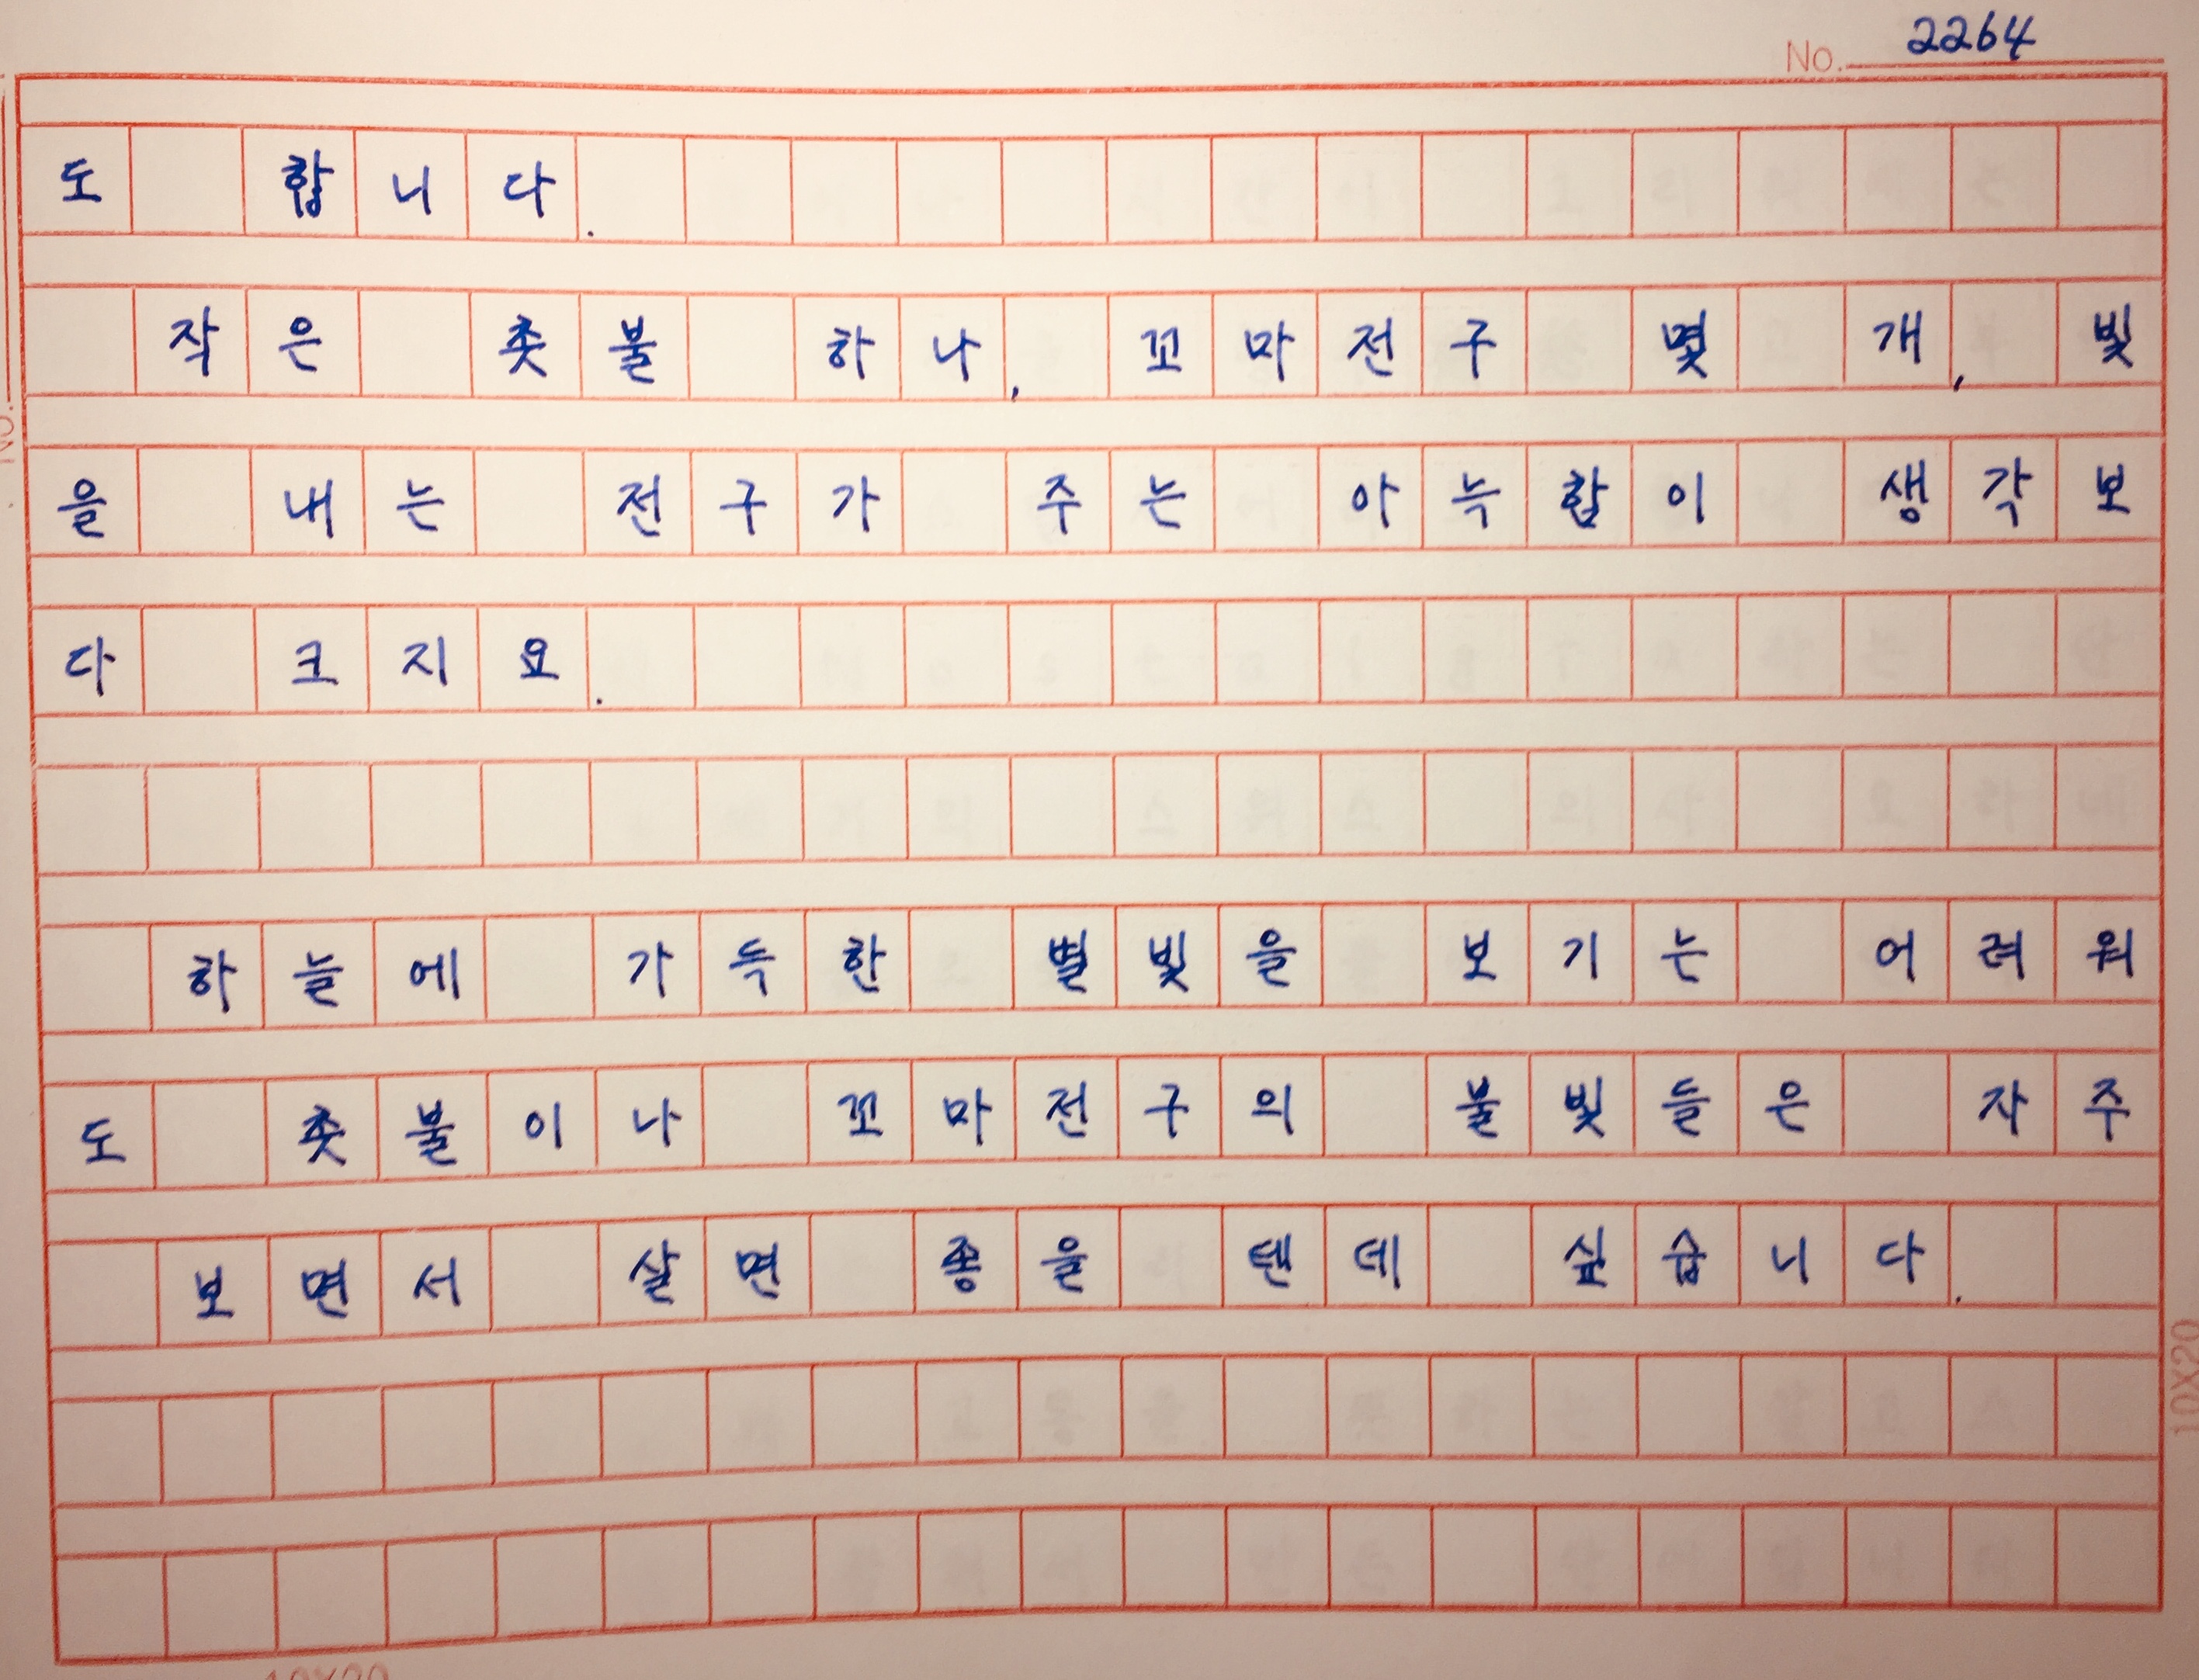 No. 2264
도 합니다.
작은 촛불 하나, 꼬마전구 몇 개, 빛
을 내는 전구가 주는 아늑함이 생각보
다 크지요.
하늘에 가득한 별빛을 보기는 어려워
도 촛불이나 꼬마전구의 불빛들은 자주
보면서 살면 좋을 텐데 싶습니다.
10X20
10X20
No.